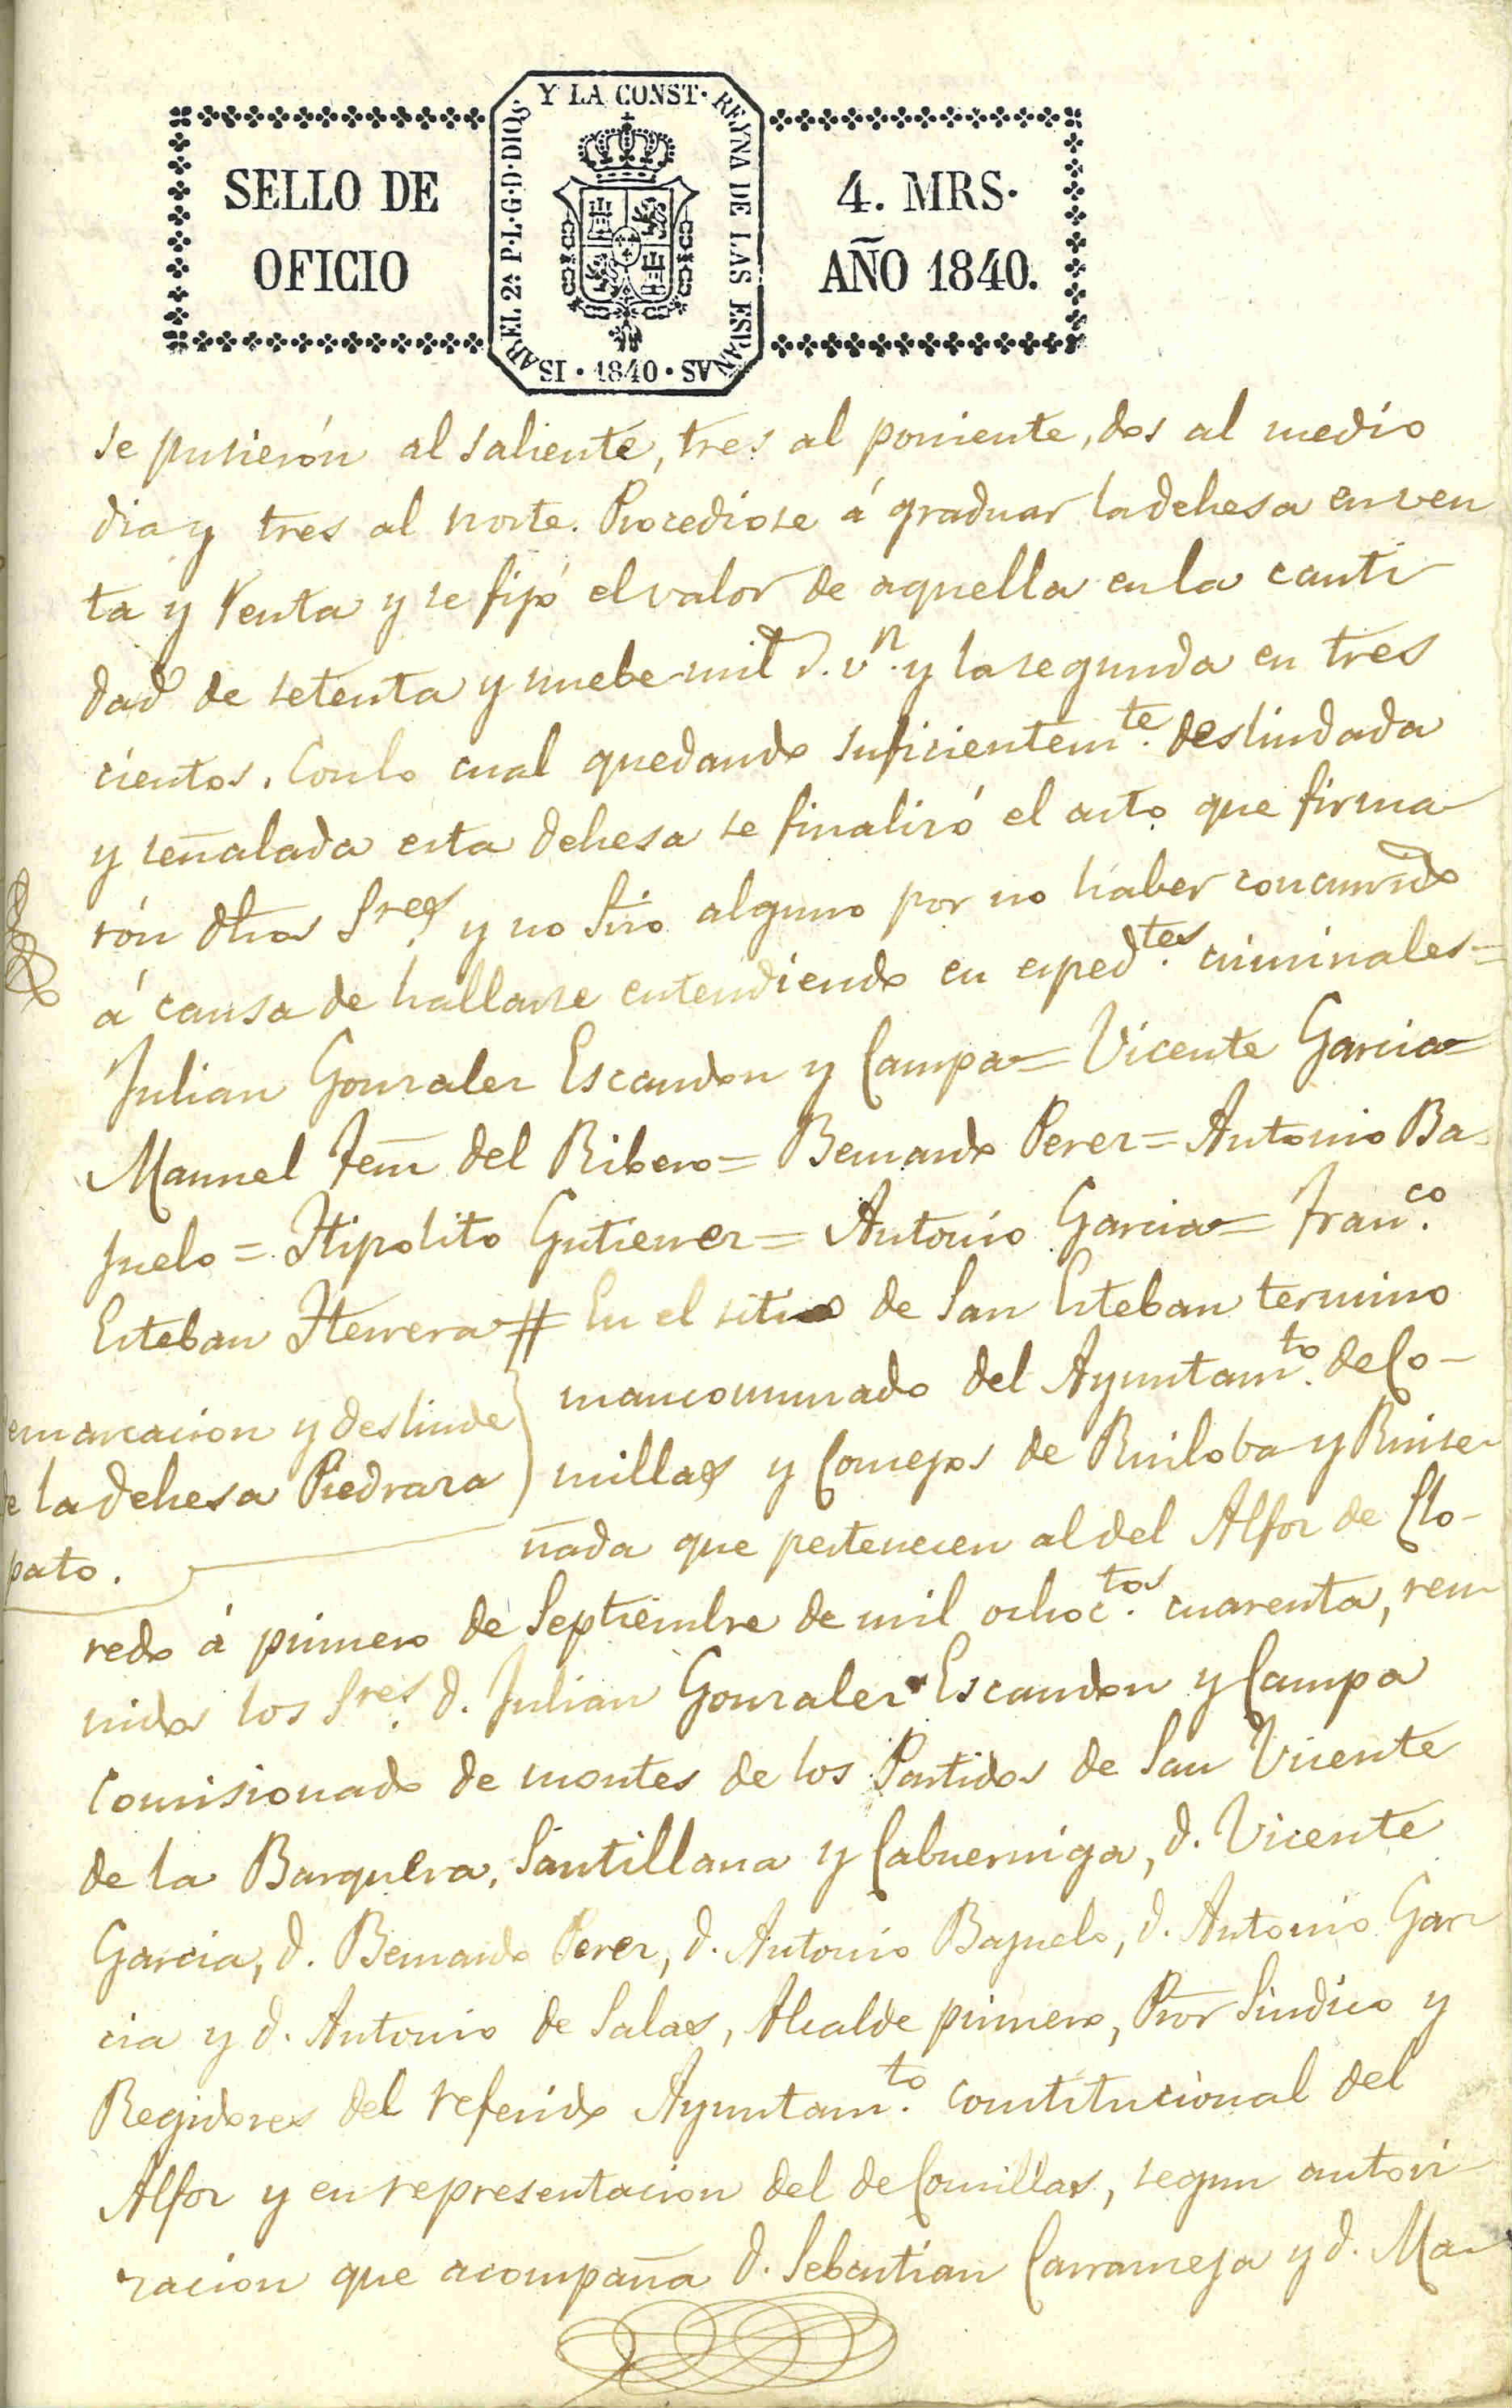 SELLO DE
OFICIO
ISABEL 2ª P.L.G.D.DIOS. Y LA CONST. REYNA DE LAS ESPAÑAS · 1840 ·
4. MRS.
AÑO 1840.
se pusierón al saliente, tres al poniente, dos al medio
dia y tres al norte. Procediose á graduar la dehesa en ven
ta y Renta y se fijó el valor de aquella en la canti
dad de setenta y nuebe mil r. vn. y la segunda en tres
cientos. Con lo cual quedando suficientemte. deslindada
y señalada esta dehesa se finalizó el acto que firma
rón dhos Sres. y no Srio alguno por no haber concurrido
á causa de hallarse entendiendo en espedtes. criminales=
Julian Gonzalez Escandon y Campa= Vicente Garcia=
Manuel Fern̄ del Ribero= Bernardo Perez= Antonio Ba
juelo= Hipolito Gutierrez= Antonio Garcia= Franco.
Esteban Herrera # En el sitio de San Esteban termino
mancomunado del Ayuntamto. de Co-
millas y Concejos de Ruiloba y Ruise-
ñada que pertenecen al del Alfoz de Llo-
emarcacion y deslinde
e la dehesa Piedraza
pato.
redo á primero de Septiembre de mil ochoctos. cuarenta, reu
nidos los Sres. d. Julian Gonzalez Escandon y Campa
Comisionado de montes de los Partidos de San Vicente
de la Barquera, Santillana y Cabuerniga, d. Vicente
Garcia, d. Bernardo Perez, d. Antonio Bajuelo, d. Antonio Gar
cia y d. Antonio de Salas, Alcalde primero, Pror Sindico y
Regidores del referido Ayuntamto. constitucional del
Alfoz y en representacion del de Comillas, segun autori
zacion que acompaña d. Sebastian Carranceja y d. Ma-